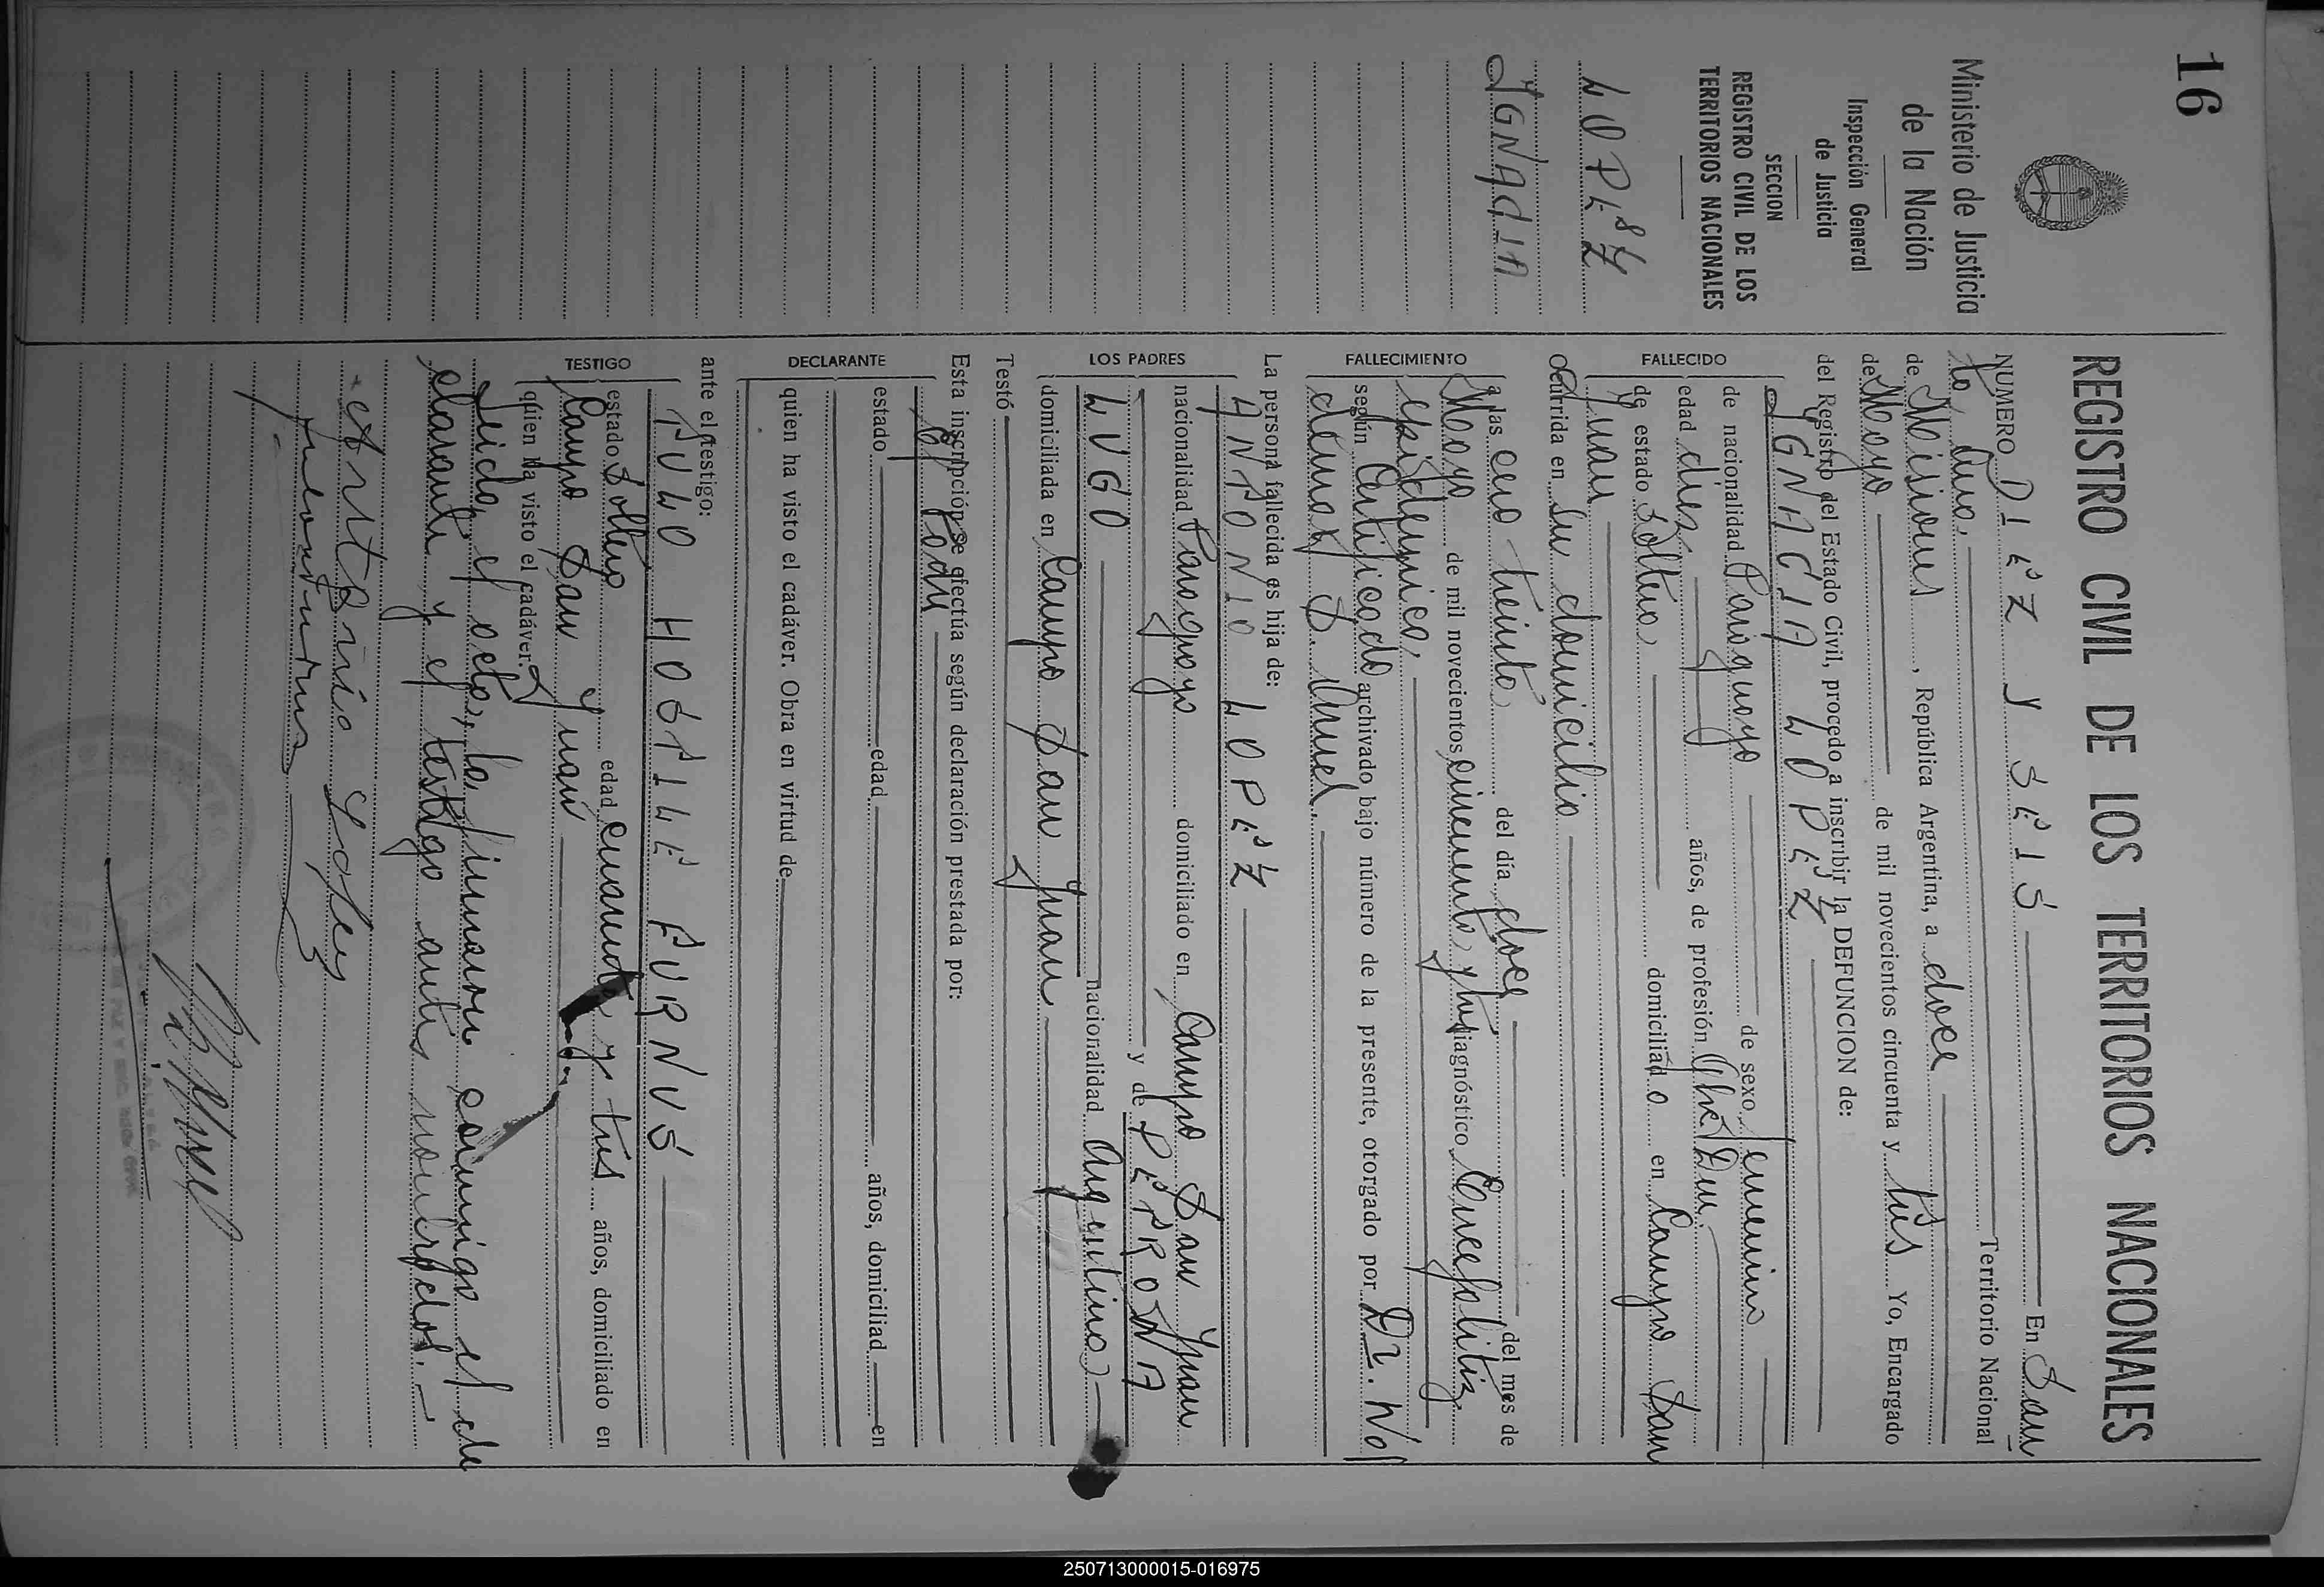 16
Ministerio de Justicia
de la Nación
Inspección General
de Justicia
SECCION
REGISTRO CIVIL DE LOS
TERRITORIOS NACIONALES
LOPEZ
IGNACIA
REGISTRO CIVIL DE LOS TERRITORIOS NACIONALES
NUMERO DIEZ Y SEIS En San
Territorio Nacional
de Misiones, República Argentina, a doce
de Mayo de mil novecientos cincuenta y tres Yo, Encargado
del Registro del Estado Civil, procedo a inscribir la DEFUNCION de:
IGNACIA LOPEZ
FALLECIDO
de nacionalidad Paraguaya de sexo femenino
edad diez años, de profesión
de estado soltera domiciliado en Campo San
Juan
Ocurrida en su domicilio
FALLECIMIENTO
a las cero treinta del día doce del mes de
Mayo de mil novecientos cincuenta y tres diagnóstico Encefalitis
epidemica,
según Certificado archivado bajo número de la presente, otorgado por Dr.
La persona fallecida es hija de:
LOS PADRES
ANTONIO LOPEZ
nacionalidad Paraguaya domiciliado en Campo San Juan
y de PETRONA
LUGO nacionalidad Argentina
domiciliada en Campo San Juan
Testó
Esta inscripción se efectúa según declaración prestada por:
DECLARANTE
El Padre
estado edad años, domiciliad en
quien ha visto el cadáver. Obra en virtud de
ante el testigo:
TESTIGO
estado soltero edad cuarenta y tres años, domiciliado en
Campo San Juan
quien ha visto el cadáver.
Leida el acta, la firmaron conmigo el de
clarante y el testigo antes nombrados.-
250713000015-016975